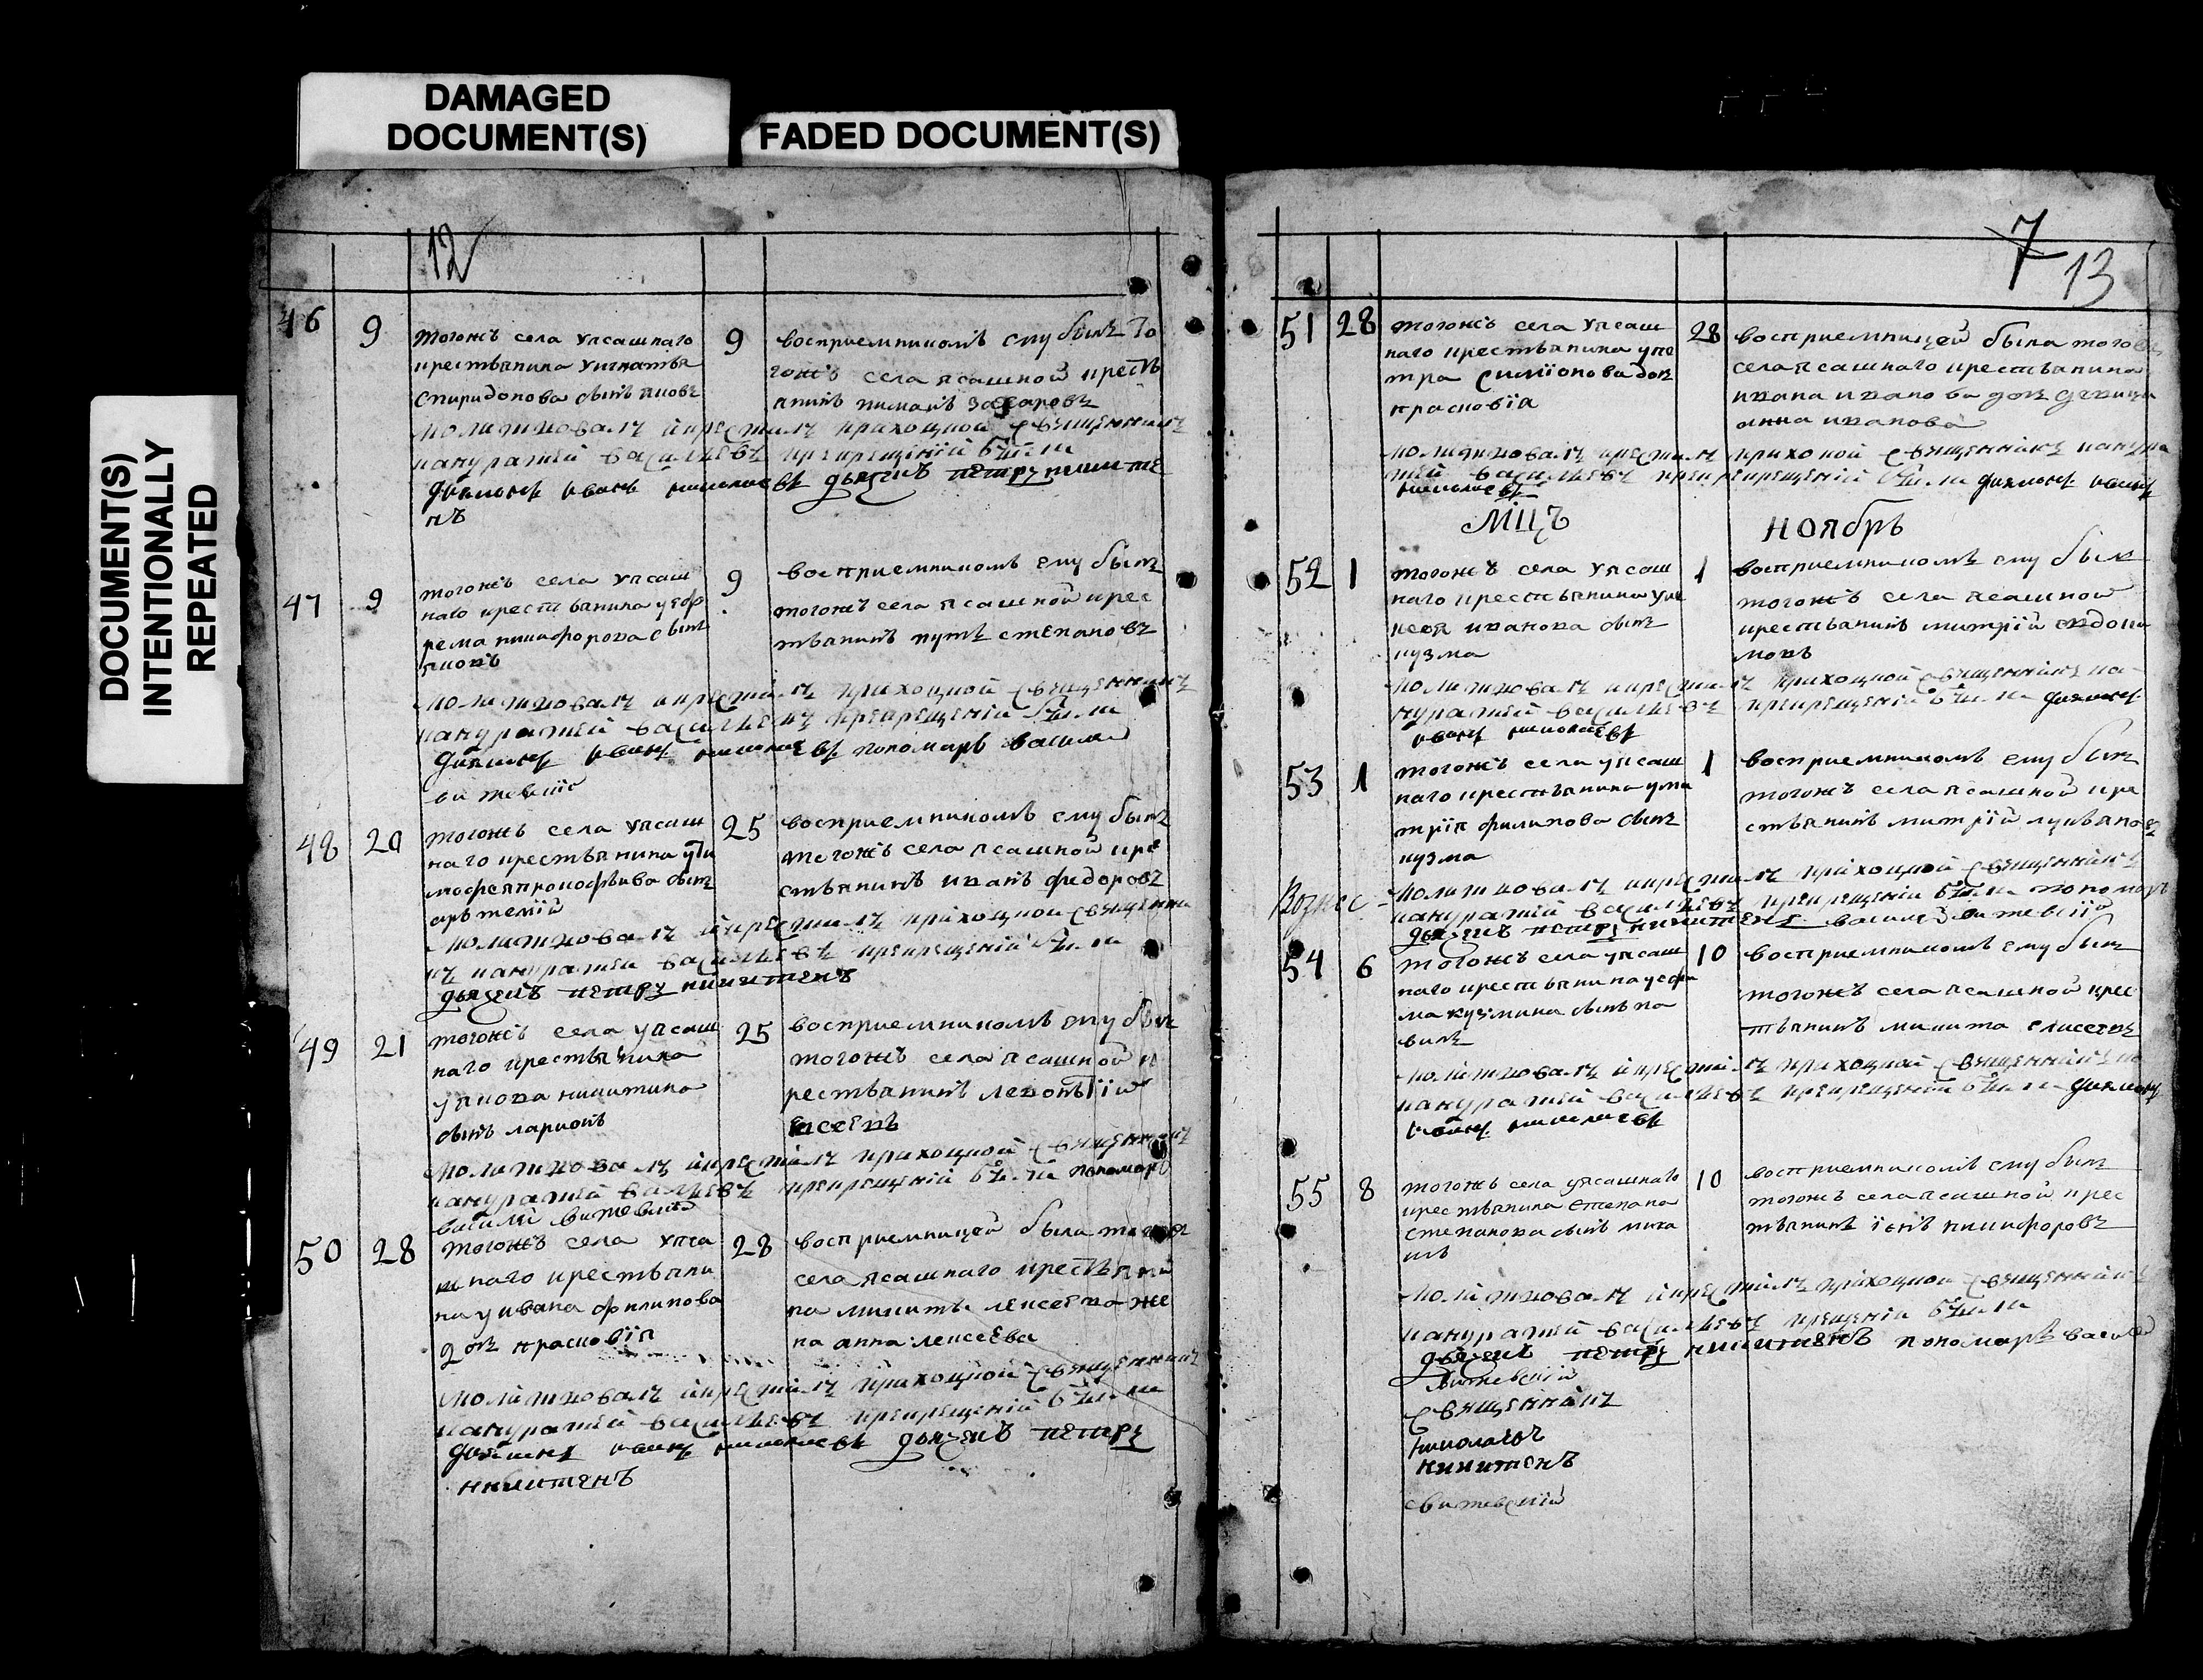 DAMAGED
DOCUMENT(S)
FADED DOCUMENT(S)
DOCUMENT(S)
INTENTIONALLY
REPEATED
12
46 9
тогожъ села уясашнаго
крестьянина уигнатья
спиридонова сынъ яковъ
9
восприемникомъ ему былъ то
гожъ села ясашной кресть
янинъ пиманъ захаровъ
молитвовалъ икрестилъ приходной священникъ
панкратей васильевъ прикрещеніи были
диаконъ иванъ николаевъ дьячекъ петръ никити
нъ
47 9
тогожъ села уясаш
наго крестьянина уефр
рема никифорова сынъ
яковъ
9
восприемникомъ ему былъ
тогожъ села ясашной крес
тьянинъ степановъ
молитвовалъ икрестилъ приходной священникъ
панкратей васильевъ прикрещеніи были
диаконъ иванъ николаевъ пономарь василей
витевскій
48 20
тогожъ села уясаш
наго крестьянина ути
мофея прокофьива сынъ
арьтемій
25
восприемникомъ ему былъ
тогожъ села ясашной кре
стьянинъ иванъ федоровъ
молитвовалъ икрестилъ приходной священни
къ панкратей васильевъ прикрещеніи были
дьячекъ петръ никитенъ
49 21
тогожъ села уясаш
наго крестьянина
уякова никитина
сынъ ларионъ
25
восприемникомъ ему былъ
тогожъ села ясашной к
рестьянинъ левоньтій
евсеевъ
молитвовалъ икрестилъ приходной священникъ
панкратей васильевъ прикрещеніи были пономарь
василй витевскій
50 28
тогожъ села уяса
шнаго крестьяни
на уивана филипова
дочь прасковія
28
восприемницей была тогожъ
села ясашнаго крестьяни
на микиты лексеева же
на анна лексеева
молитвовалъ икрестилъ приходной священникъ
панкратей васильевъ прикрещеніи были
диаконъ иванъ николаевъ дьячекъ петръ
никитенъ
7 13
51 28
тогожъ села уясаш
наго крестьянина упе
тра симіонова доч
прасковіа
28
восприемницей была тогожъ
села ясашнаго крестьянина
ивана иванова дочь девица
анна иванова
молитвовалъ икрестилъ приходной священникъ панкра
тей васильевъ прикрещеніи были диаконъ иванъ
николаевъ
Мцъ ноябрь
52 1
тогожъ села уясаш
наго крестьянина уле
ксея иванова сынъ
кузма
1
восприемникомъ ему былъ
тогожъ села ясашной
крестьянинъ митрій евдоки
мовъ
молитвовалъ икрестилъ приходной священникъ па
нкратей васильевъ прикрещеніи были диаконъ
иванъ николаевъ
53 1
тогожъ села уясаш
наго крестьянина уми
трія филипова сынъ
кузма
1
восприемникомъ ему былъ
тогожъ села ясашной кре
стьянинъ митрій лукьяновъ
Вознес-
молитвовалъ икрестилъ приходной священникъ
панкратей васильевъ прикрещеніи были пономарь
дьячекъ петръ никитенъ василей витевскій
54 6
тогожъ села уясаш
наго крестьянина уефи
ма кузмина сынъ га
вилъ
10
восприемникомъ ему былъ
тогожъ села ясашной крес
тьянинъ микита елисеевъ
молитвовалъ икрестилъ приходной священникъ
панкратей васильевъ прикрещеніи были диаконъ
иванъ николаевъ
55 8
тогожъ села уясашнаго
крестьянина степана
степанова сынъ миха
илъ
10
восприемникомъ ему былъ
тогожъ села ясашной крес
тьянинъ никифоровъ
молитвовалъ икрестилъ приходной священникъ
панкратей васильевъ крещеніи были
дьячекъ петръ никитенъ пономарь василей
витевскій
священникъ
николаевъ
никитенъ
витевскій